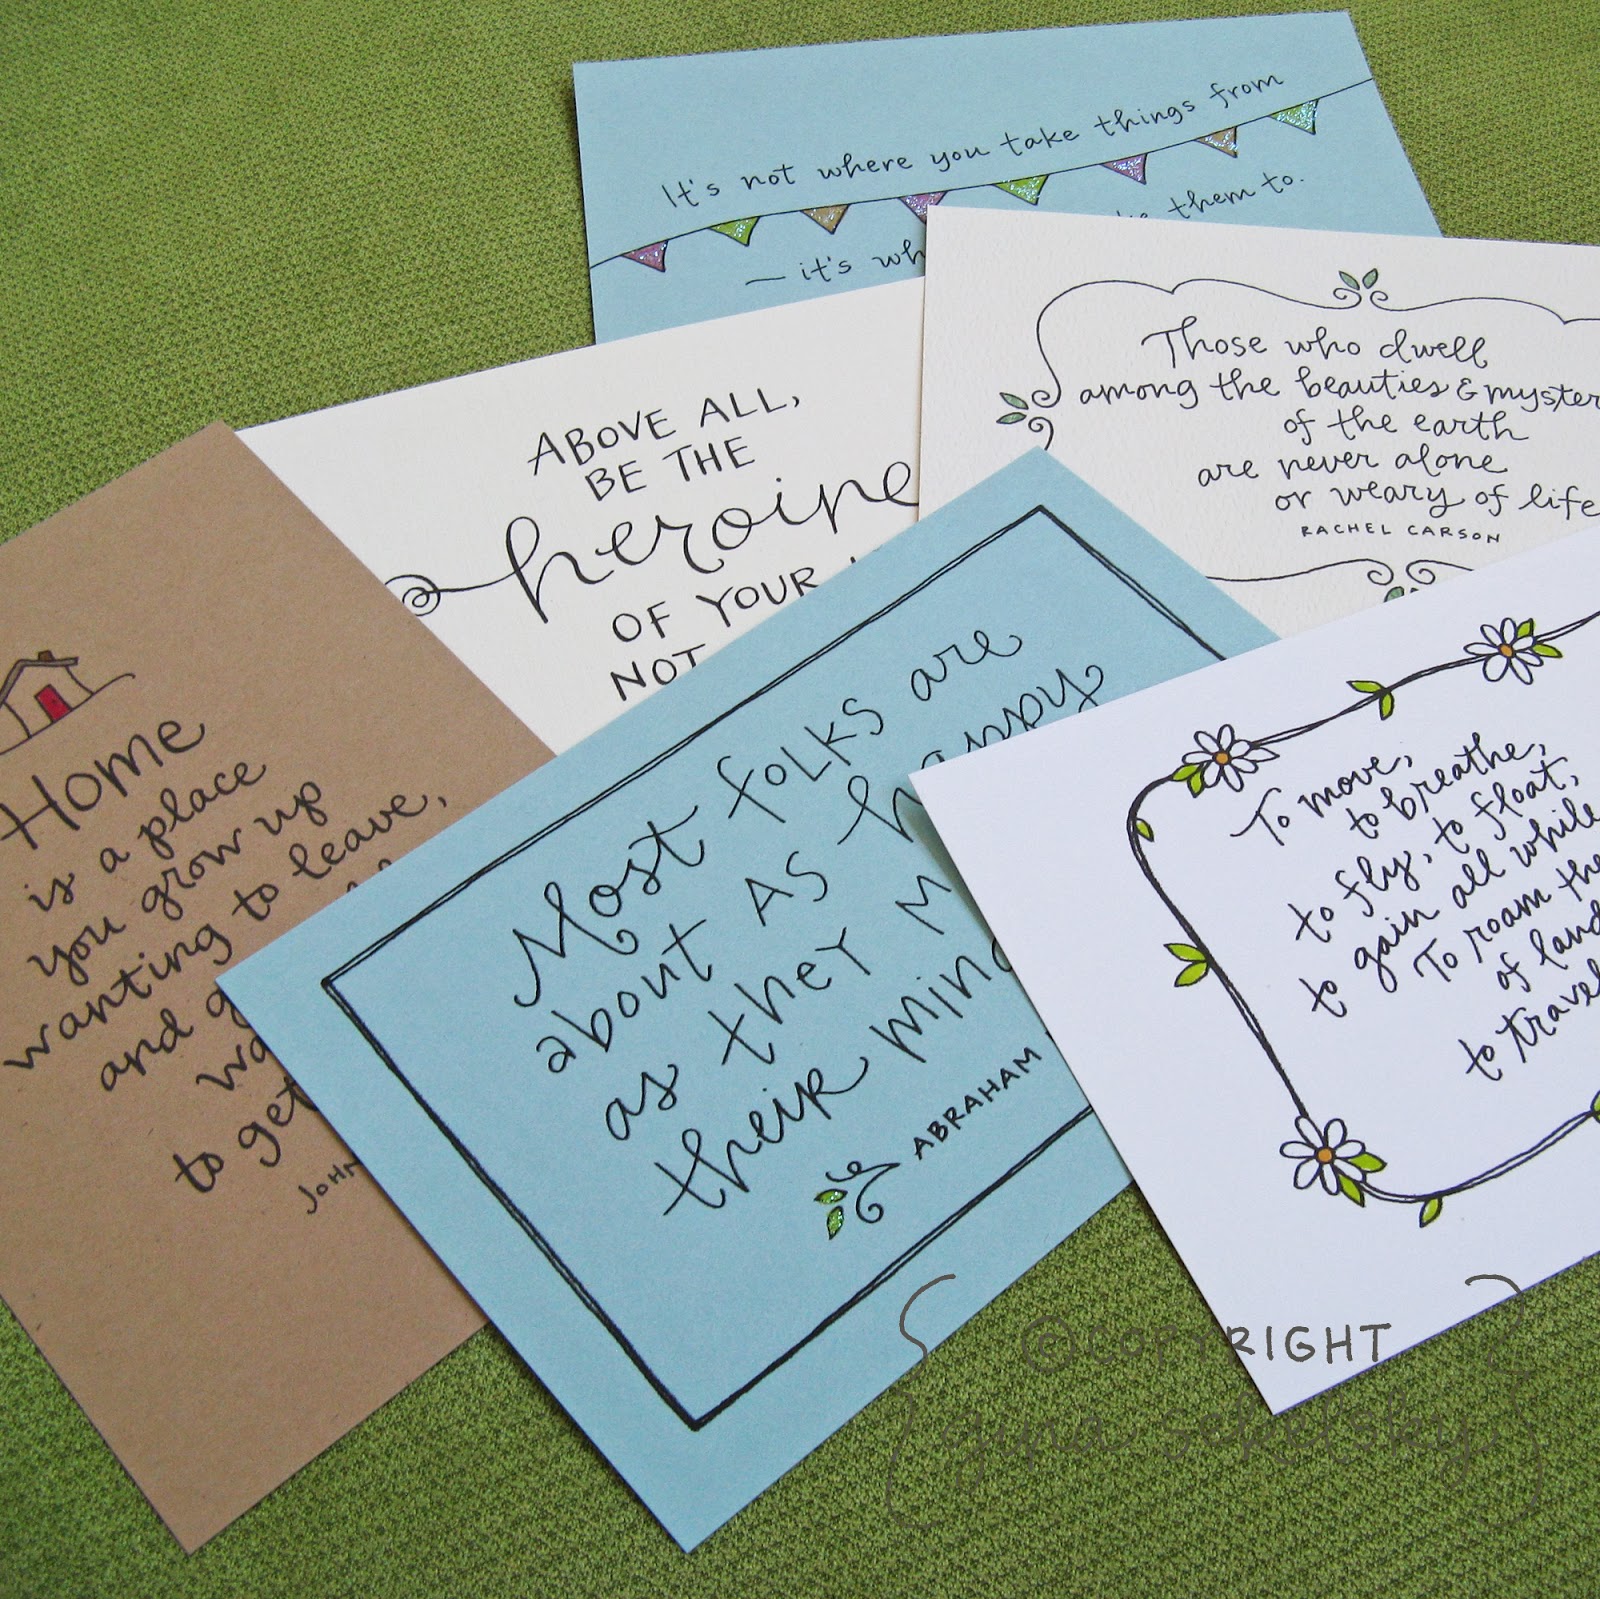 It's not where you take things from
— it's wh them to.
Those who dwell
among the beauties & myster
of the earth
are never alone
or weary of life
RACHEL CARSON
ABOVE ALL,
BE THE
heroine
OF YOUR
NOT
Home
is a place
you grow up
wanting to leave,
and g
wa
to get
JOHN
Most folks are
about as happy
as they m
their mind
ABRAHAM
To move,
to breathe,
to fly, to float,
to gain all while
To roam the
of land
to travel
©COPYRIGHT
gina sekelsky